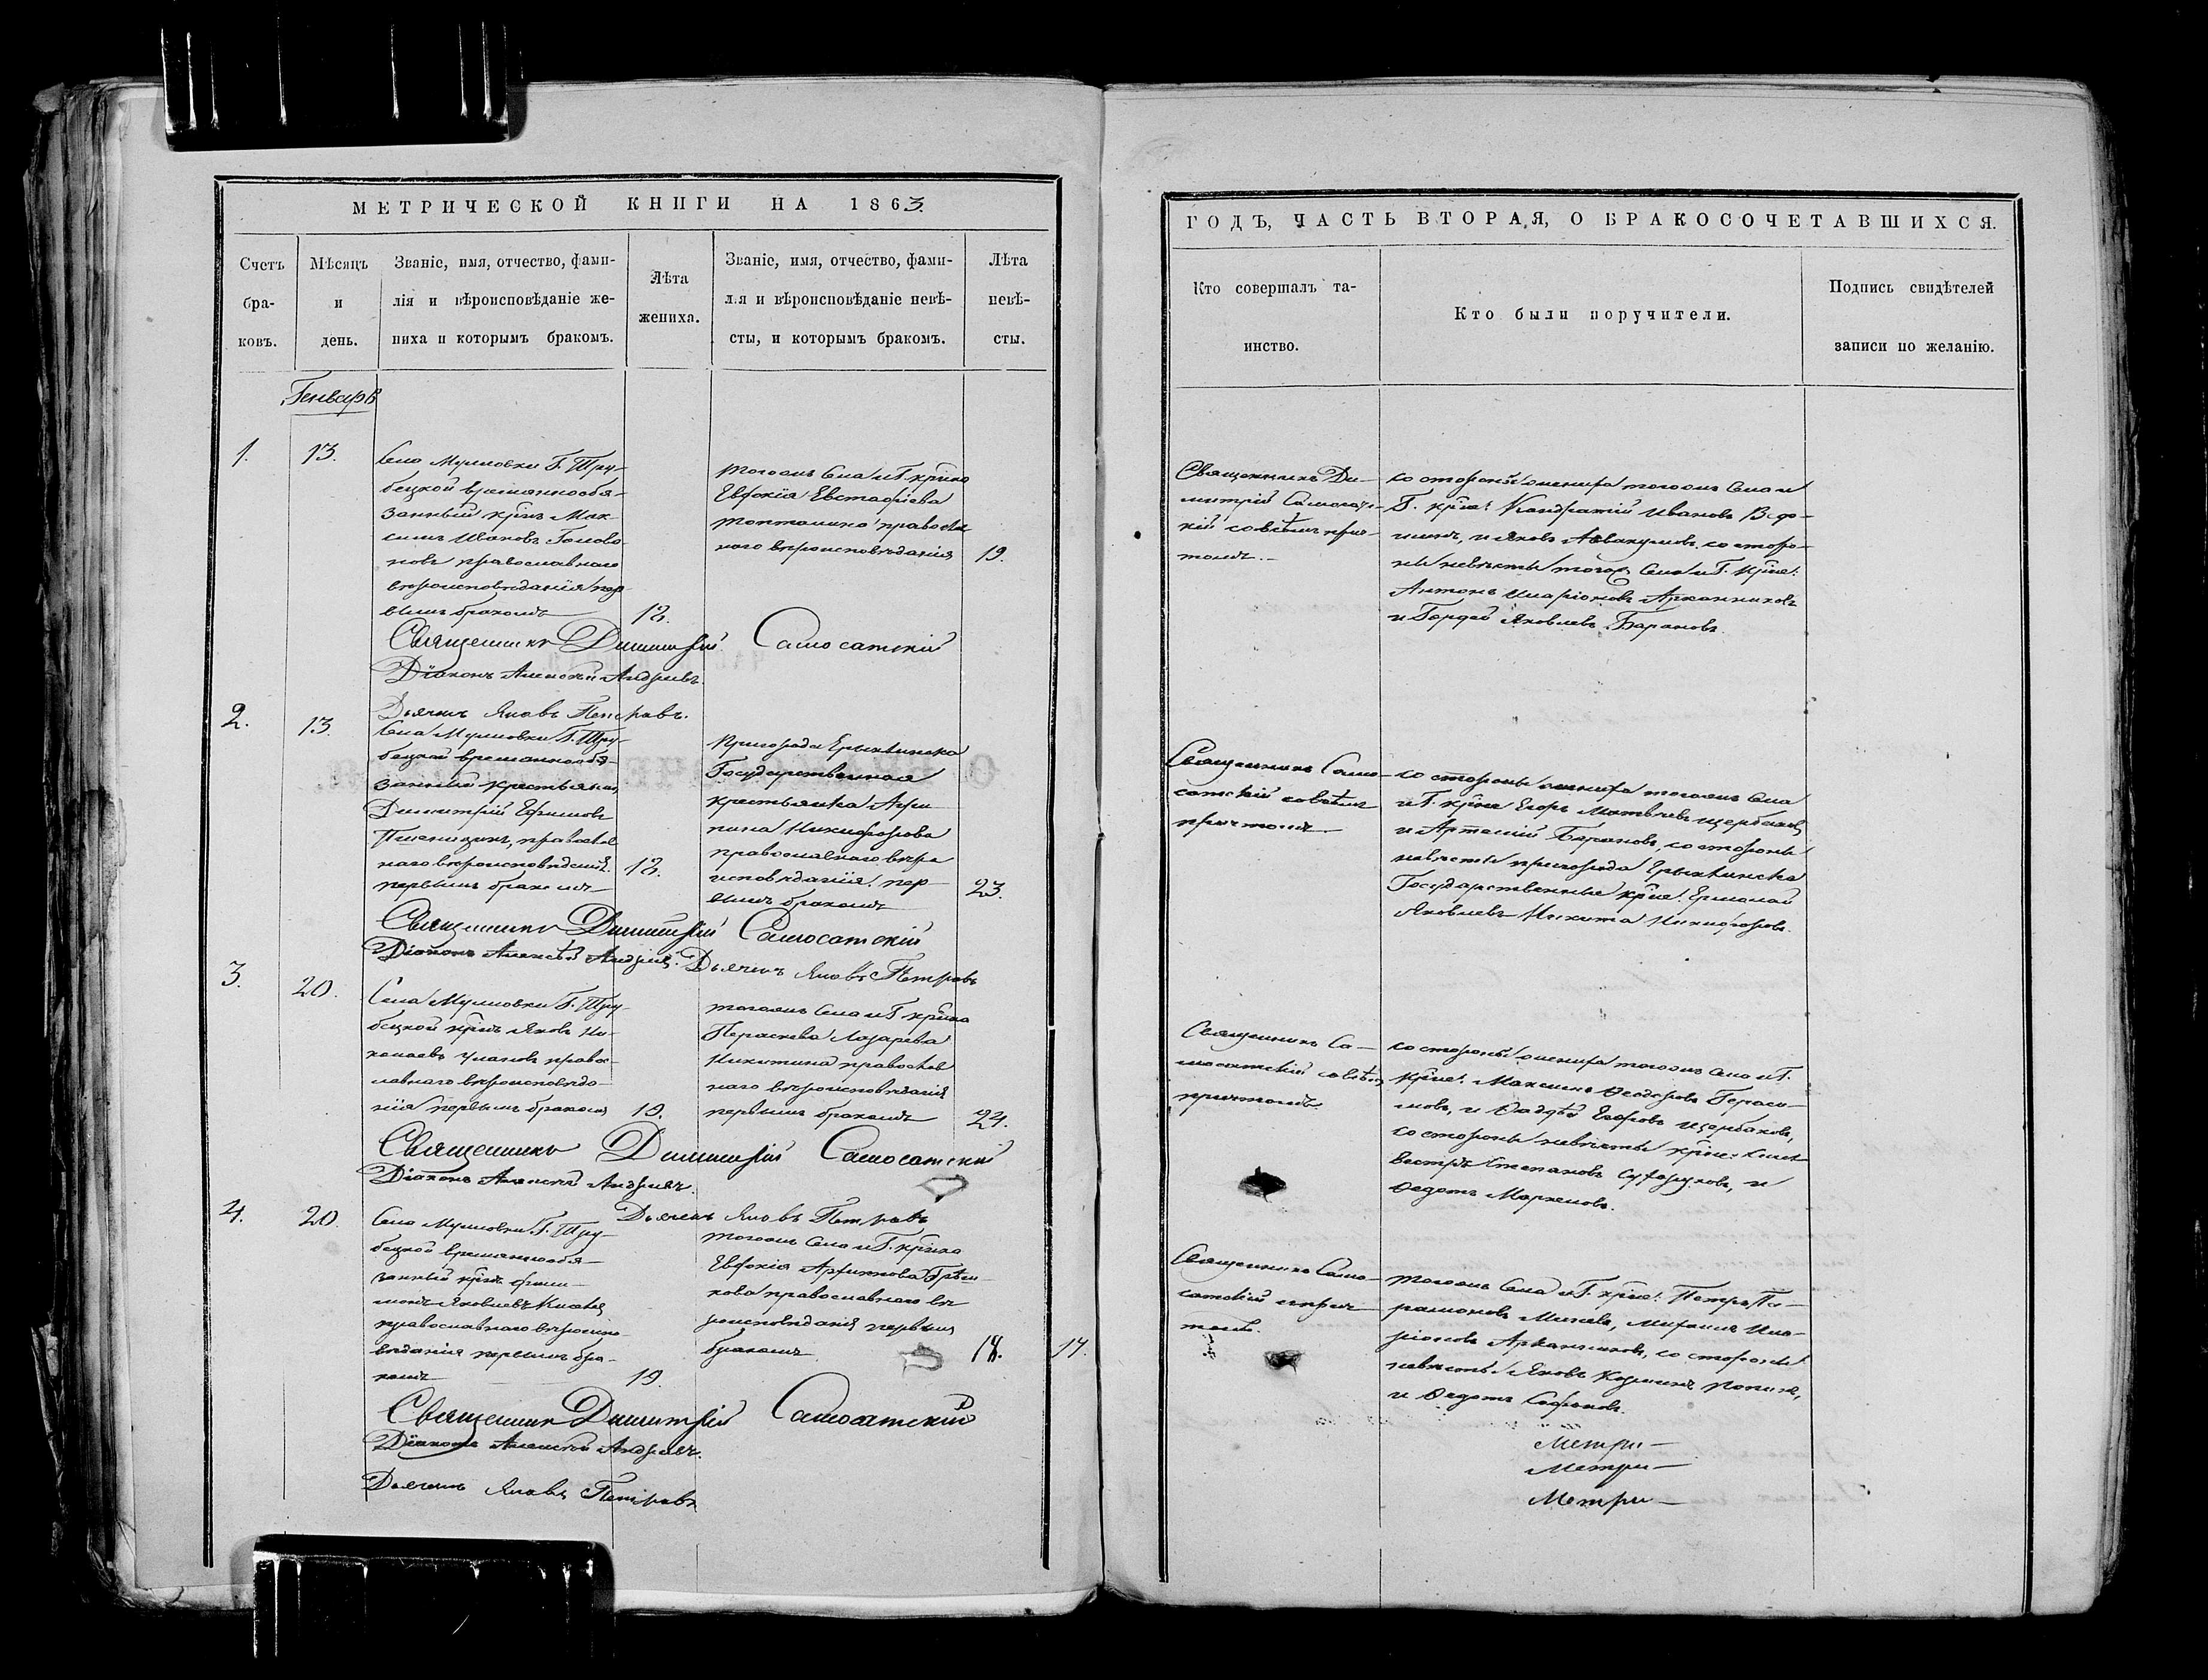 МЕТРИЧЕСКОЙ КНИГИ НА 1863.
Счетъ бра-ковъ.
Мѣсяцъ и день.
Званіе, имя, отчество, фами-
лія и вѣроисповѣданіе же-
ниха и которымъ бракомъ.
Лѣта
жениха.
Званіе, имя, отчество, фами-
лія и вѣроисповѣданіе невѣ-
сты, и которымъ бракомъ.
Лѣта
невѣ-
сты.
Генварь
1.
13.
Села Мулловки Г. Тру-
бецкой временнообя-
занный крнъ Мак-
симъ Ивановъ
новъ православнаго
вѣроисповѣданія пер-
вымъ бракомъ
18.
тогожъ села и Г. крѣнка
Евфокія Евстафіева
православ
наго вѣроисповѣданія
19.
Священникъ Димитрій Самосатскій
Діаконъ Алексѣй Андреевъ.
Дьячекъ Яковъ Петровъ.
2.
13
Села Мулловки Г. Тру-
бецкой временнообя-
занный крестьянинъ
Димитрій Ефимовъ
Пшеницынъ, православ
наго вѣроисповѣданія
первымъ бракомъ
18.
Пригорода Ерыклинска
Государственная
крестьянка Агри-
пина Никифорова
православнаго вѣро
исповѣданія пер-
вымъ бракомъ
23.
Священникъ Димитрій Самосатскій
Діаконъ Алексѣй Андреевъ. Дьячекъ Яковъ Петровъ
3.
20.
Села Мулловки Г. Тру-
бецкой крнъ Яковъ Ни-
колаевъ Улановъ правос-
лавнаго вѣроисповѣда-
нія первымъ бракомъ
19.
тогожъ села и Г. крѣнка
Параскева Лазарева
Никитина православ
наго вѣроисповѣданія
первымъ бракомъ
24.
Священникъ Димитрій Самосатскій
Діаконъ Алексѣй Андреевъ.
Дьячекъ Яковъ Петровъ
4.
20.
Села Мулловки Г. Тру-
бецкой временнообя-
занный крнъ Фили-
монъ Яковлевъ
православнаго вѣроиспо-
вѣданія первымъ бра-
комъ
19.
тогожъ села и Г. крѣнка
Евфокія
кова православнаго вѣ
роисповѣданія первымъ
бракомъ
18.
Священникъ Димитрій Самосатскій
Діаконъ Алексѣй Андреевъ.
Дьячекъ Яковъ Петровъ
17.
ГОДЪ, ЧАСТЬ ВТОРАЯ, О БРАКОСОЧЕТАВШИХСЯ.
Кто совершалъ та-
инство.
Кто были поручители.
Подпись свидѣтелей
записи по желанію.
Священникъ Ди-
митрій Самосатс-
кій совсѣмъ прич-
томъ.
со стороны жениха тогожъ села и
Г. крѣне: Кандратій Ивановъ
и Яковъ Аввакумовъ. со сторо-
ны невѣсты тогожъ села и Г. крѣне:
Антонъ Иларіоновъ Арханниковъ
и Гордей Яковлевъ Барановъ.
Священникъ Само-
сатскій совсѣмъ
причтомъ.
со стороны жениха тогожъ села
и Г. крѣне Егоръ Матвѣевъ Щербаковъ
и Артемій Барановъ, со стороны
невѣсты пригорода Ерыклинска
Государственные крѣне: Ермолай
Яковлевъ Никита Никифоровъ.
Священникъ Са-
мосатскій совсѣмъ
причтомъ.
со стороны жениха тогожъ села и Г.
крѣне: Максимъ Ѳеодоровъ Гераси-
мовъ, и Егоровъ Щербаковъ,
со стороны невѣсты крѣне: Сили-
вестръ Степановъ и
Ѳедотъ Маркеловъ.
Священникъ Само-
сатскій съ прич-
томъ.
тогожъ села и Г. крѣне: Петръ Па-
рамоновъ Михаилъ Ила-
ріоновъ Арханниковъ, со стороны
невѣсты Яковъ Козминъ
и Ѳедотъ
Метри-
Метри-
Метри-